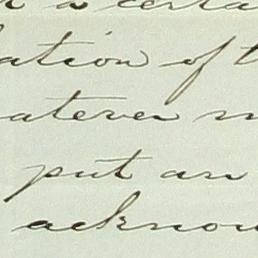 a certa
ation of t
atever m
put an
acknow